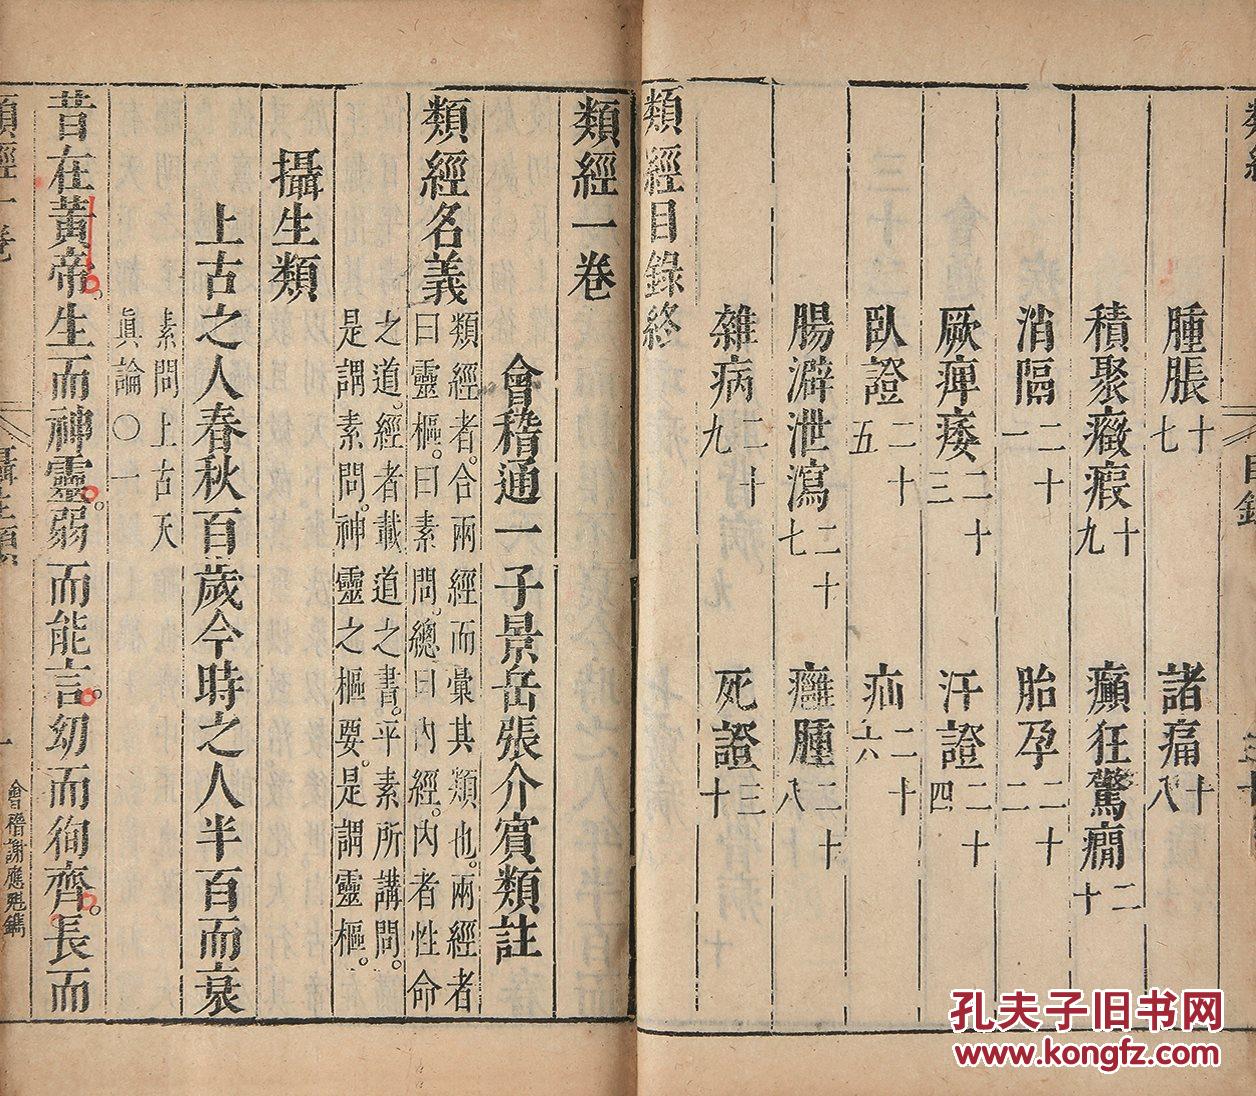 類經
目錄
腫脹十七
諸痛十八
積聚癥瘕十九
癲狂驚癇二十
消隔二十一
胎孕二十二
厥痺痿二十三
汗證二十四
臥證二十五
疝二十六
腸澼泄瀉二十七
癰腫二十八
雜病二十九
死證三十
類經目錄終
類經一卷
會稽通一子景岳張介賓類註
類經名義
類經者。合兩經而彙其類也。兩經者
曰靈樞。曰素問。總曰內經。內者性命
之道。經者載道之書。平素所講問。
是謂素問。神靈之樞要。是謂靈樞。
攝生類
上古之人春秋百歲今時之人半百而衰
素問上古天
眞論〇一
昔在黃帝。生而神靈。弱而能言。幼而徇齊。長而
類經一卷
攝生類
一
會稽謝應魁鐫
孔夫子旧书网
www.kongfz.com